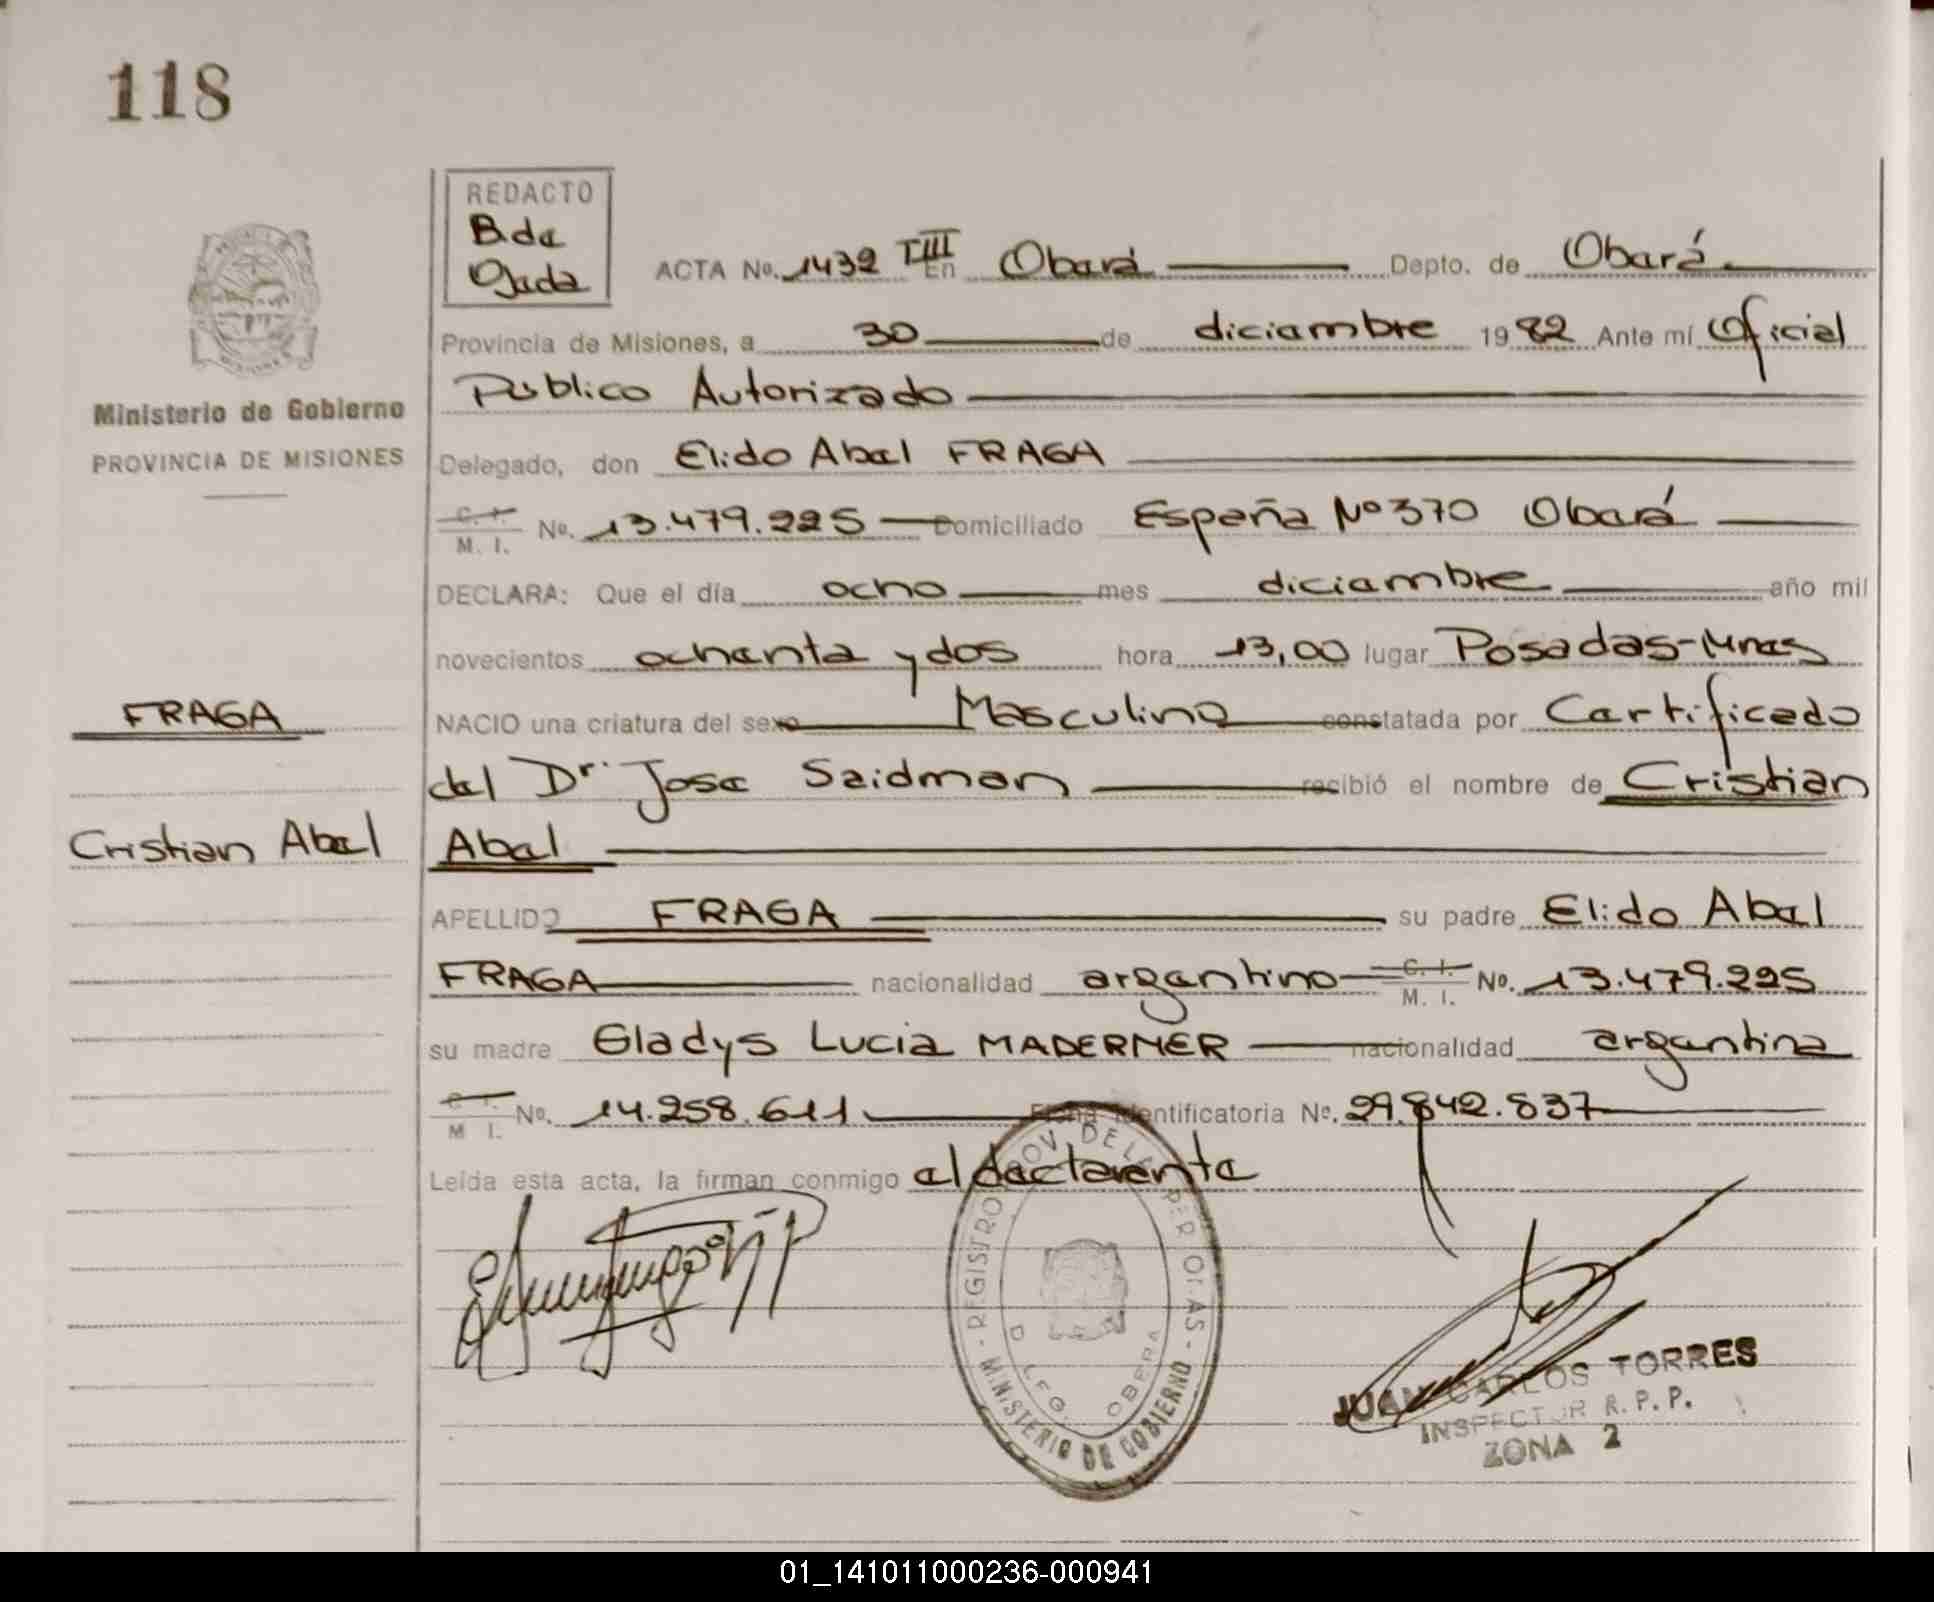 118
REDACTO
B.de
Ojeda
ACTA No. 1432 TIII En Oberá Depto. de Oberá
Provincia de Misiones, a 30 de diciembre 1982 Ante mí Oficial
Público Autorizado
Ministerio de Gobierno
PROVINCIA DE MISIONES
Delegado, don Elido Abel FRAGA
C. I. M. I. No. 13.479.225 Domiciliado España Nº 370 Oberá
DECLARA: Que el día ocho mes diciembre año mil
novecientos ochenta y dos hora 13,00 lugar Posadas-Mnes
FRAGA
NACIO una criatura del sexo Masculino constatada por Certificado
del Dr. Jose Seidman recibió el nombre de Cristian
Cristian Abel
Abel
APELLIDO FRAGA su padre Elido Abel
FRAGA nacionalidad argentino C. I. M. I. No. 13.479.225
su madre Gladys Lucia MADERNER nacionalidad argentina
C. I. M. I. No. 14.258.611 Ficha Identificatoria No. 29.842.837
Leída esta acta, la firman conmigo el declarente
REGISTRO PROV. DE LAS PER OI.AS - MINISTERIO DE GOBIERNO -
DELEG. OBERA
JUAN CARLOS TORRES
INSPECTOR R.P.P.
ZONA 2
01_141011000236-000941